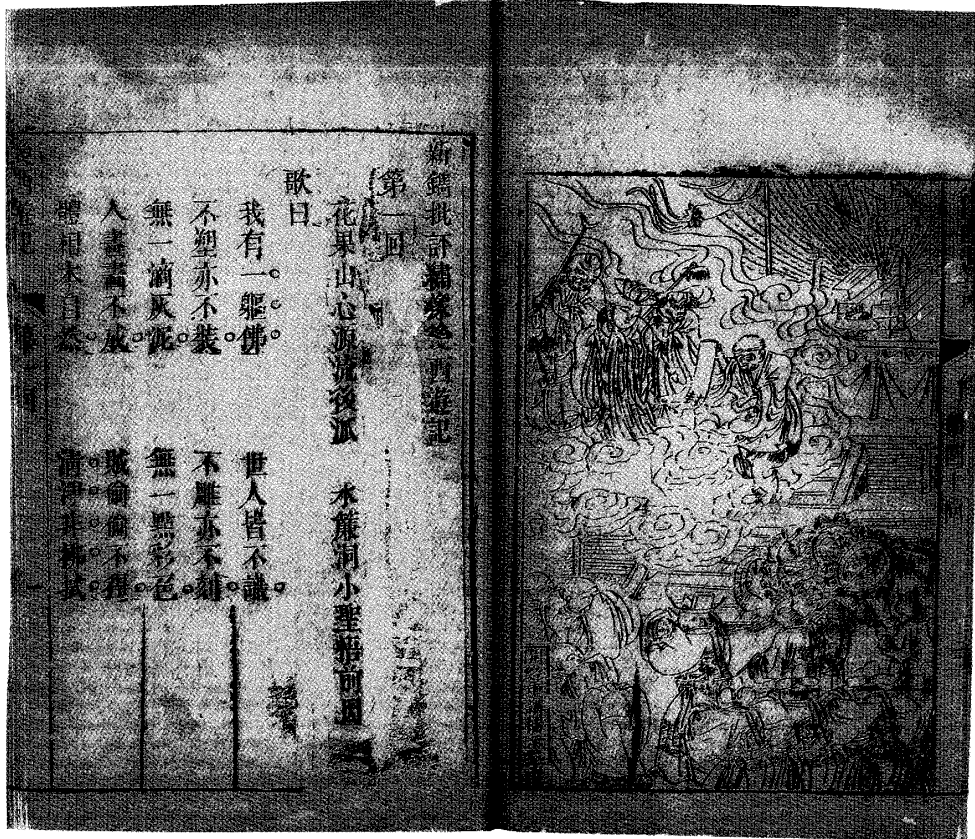 新鐫批評繡像後西遊記
第一回
花菓山心源流後派　水簾洞小聖悟前因
歌曰
我有一軀佛　世人皆不識
不塑亦不裝　不雕亦不刻
無一滴灰泥　無一點彩色
人畫畫不成　賊偷偷不得
體相本自然　清淨非拂拭